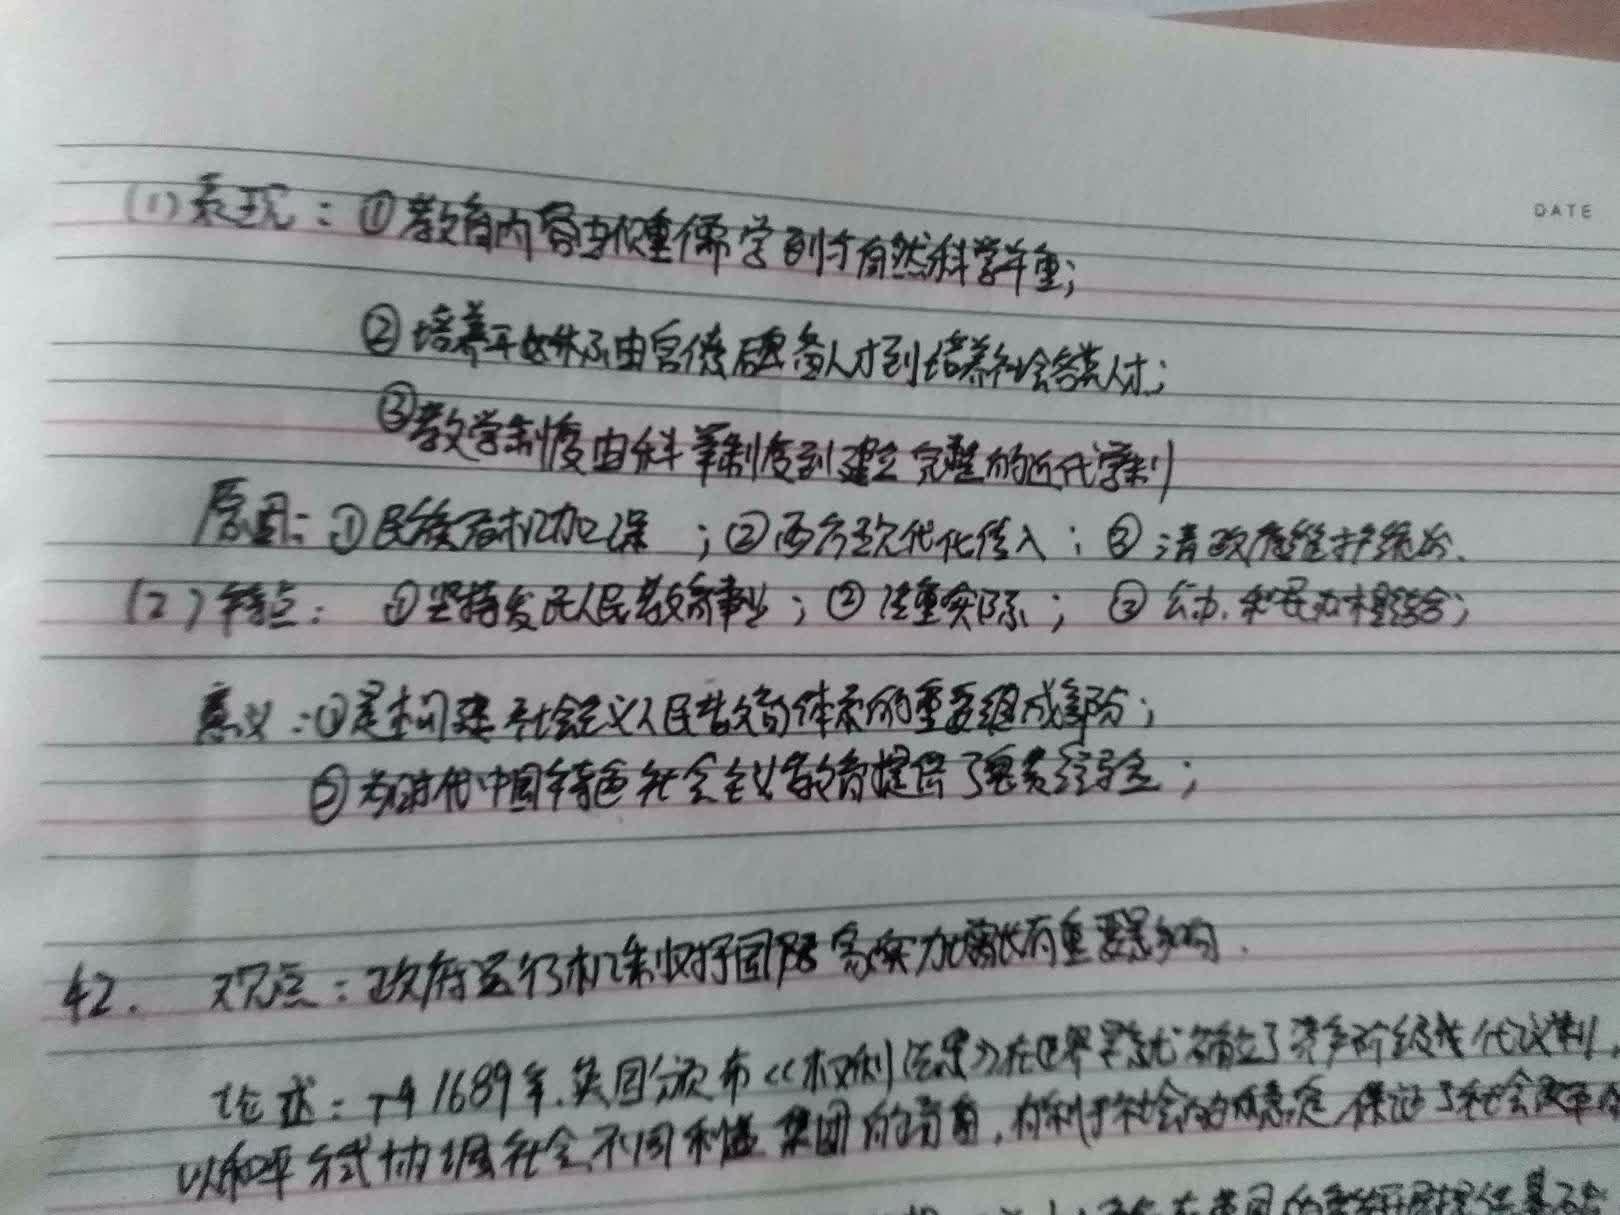 DATE
(1)表现：①教育内容由侧重儒学到与自然科学并重；
②培养 由官僚后备人才到培养社会各类人才；
③教学制度由科举制度到建立完整的近代学制
原因：①民族危机加深；②西方 文化传入；③清政府维护统治.
(2)特点：①坚持发展人民教育事业；②注重实际；③公办、和民办相结合；
意义：①是构建社会主义人民教育体系的重要组成部分；
②为新时代中国特色社会主义教育提供了宝贵经验；
42. 观点：政府运行机制对于国 家实力增长有重要影响.
论述：于1689年.英国颁布《权利法案》在世界 确立了资产阶级 代议制,
以和平方式协调社会不同利益集团的 ,有利于社会的 稳定,保证了社会改革